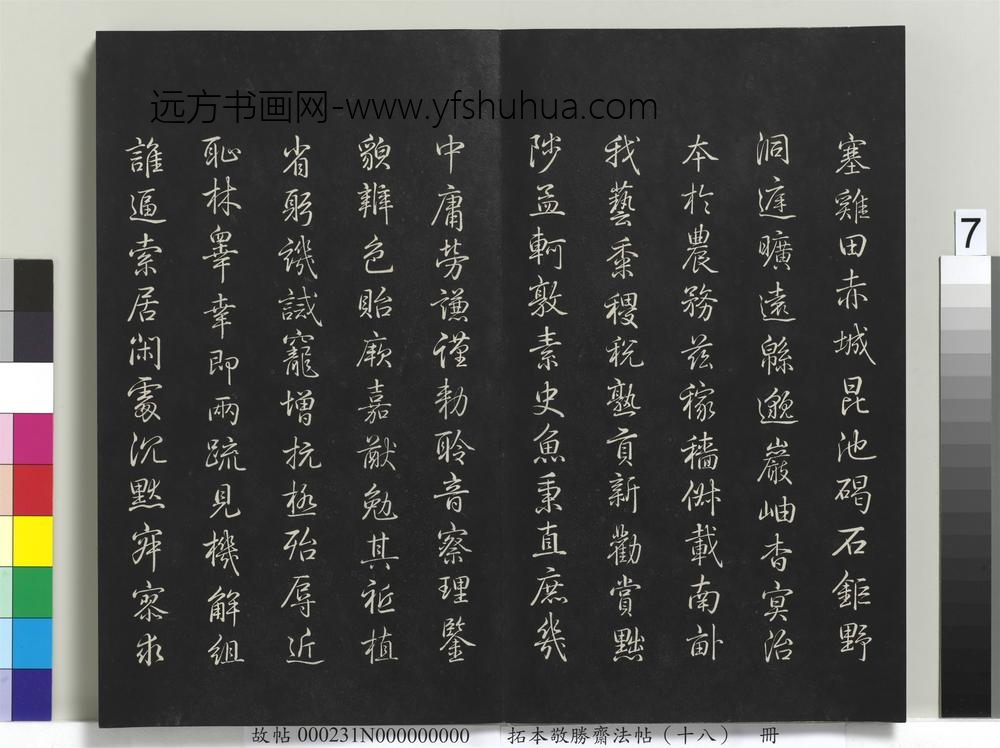 远方书画网-www.yfshuhua.com
塞雞田赤城昆池碣石鉅野
洞庭曠遠緜邈巖岫杳冥治
本於農務茲稼穡俶載南畝
我藝黍稷稅熟貢新勸賞黜
陟孟軻敦素史魚秉直庶幾
中庸勞謙謹勑聆音察理鑒
貌辨色貽厥嘉猷勉其祗植
省躬譏誡寵增抗極殆辱近
恥林臯幸即兩疏見機解組
誰逼索居閑處沉默寂寥求
7
故帖 000231N000000000 拓本敬勝齋法帖（十八） 冊